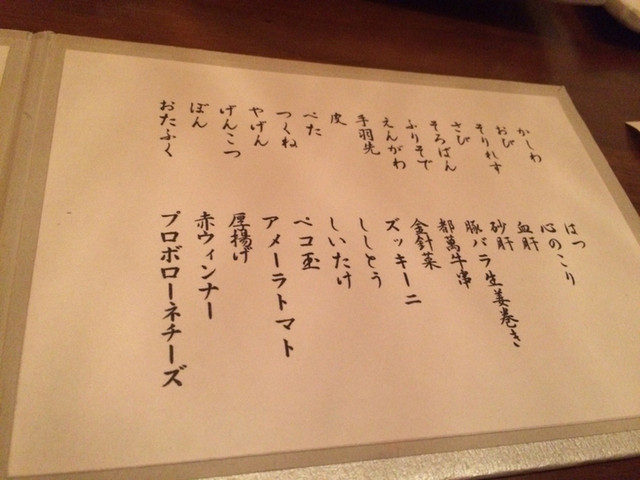 かしわ
おび
そりれす
さび
そろばん
ふりそで
えんがわ
手羽先
皮
ぺた
つくね
やげん
げんこつ
ぼん
おたふく
はつ
心のこり
血肝
砂肝
豚バラ生姜巻き
都萬牛串
金針菜
ズッキーニ
ししとう
しいたけ
ペコ玉
アメーラトマト
厚揚げ
赤ウィンナー
プロボローネチーズ